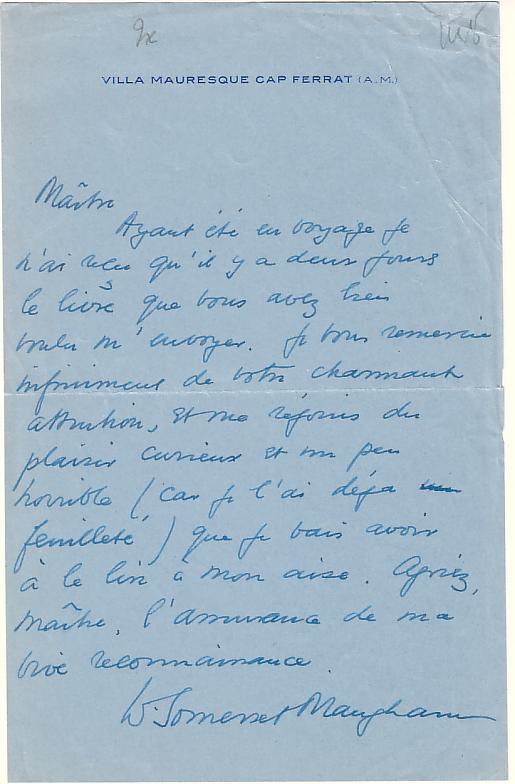 VILLA MAURESQUE CAP FERRAT (A.M.)
Maître
Ayant été en voyage je
n'ai reçu qu'il y a deux jours
le livre que vous avez bien
voulu m'envoyer. Je vous remercie
infiniment de votre charmante
attention, et me réjouis du
plaisir curieux et un peu
horrible (car je l'ai déja
feuilleté) que je vais avoir
à le lire à mon aise. Agréez,
Maître, l'assurance de ma
vive reconnaissance.
W. Somerset Maugham